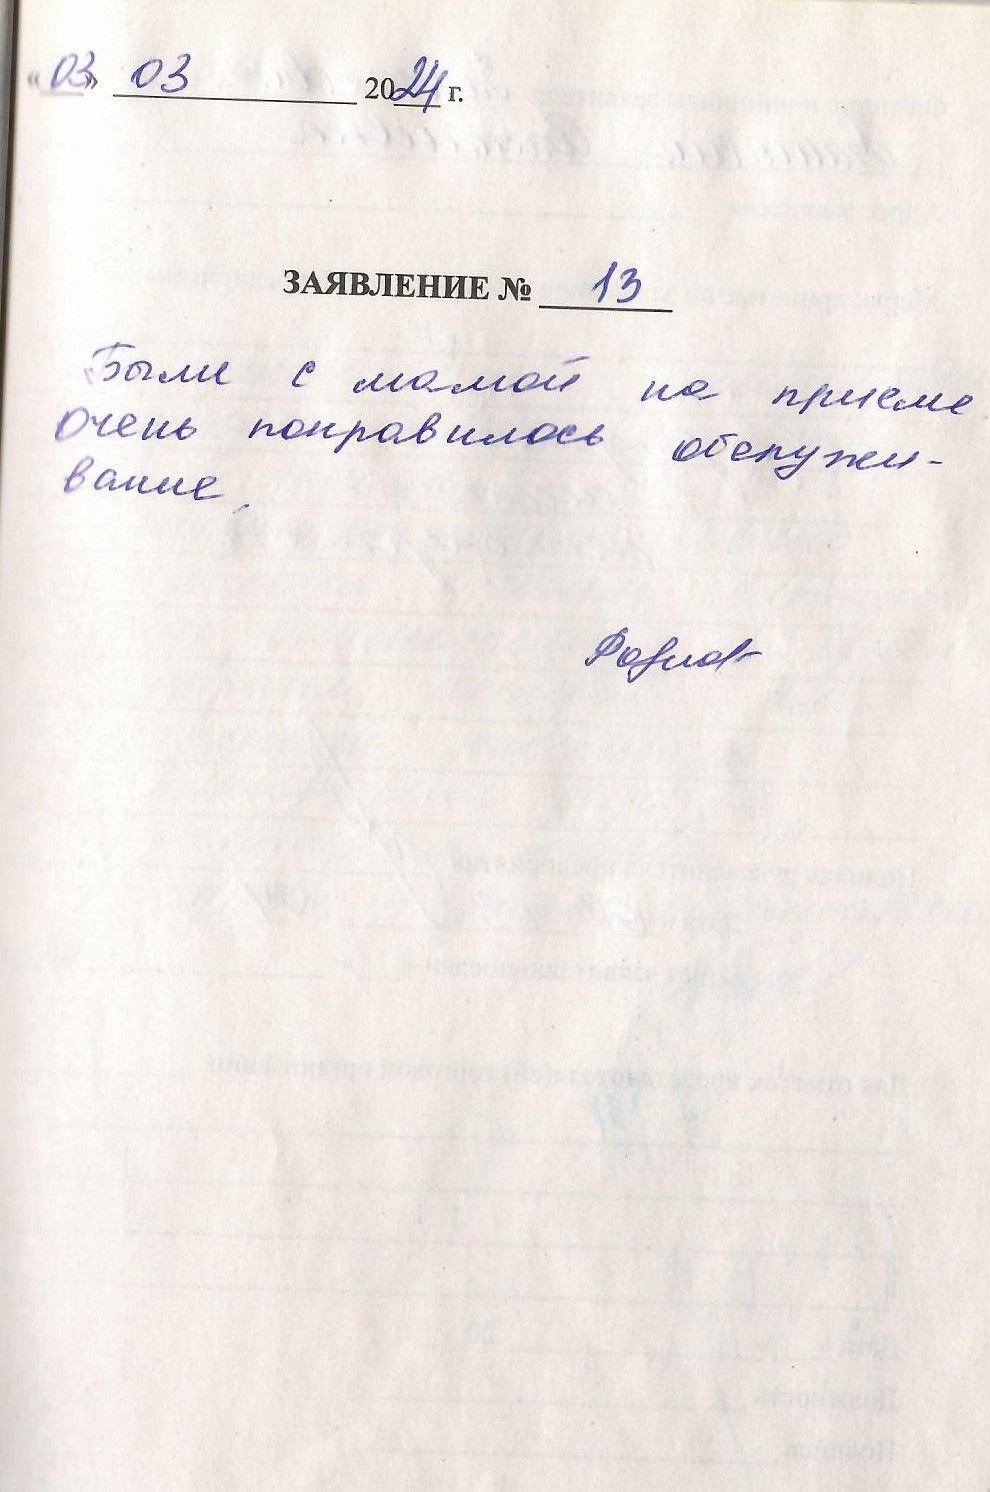 «03» 03 2024 г.
ЗАЯВЛЕНИЕ № 13
Были с мамой на приеме
очень понравилось обслужи-
вание,